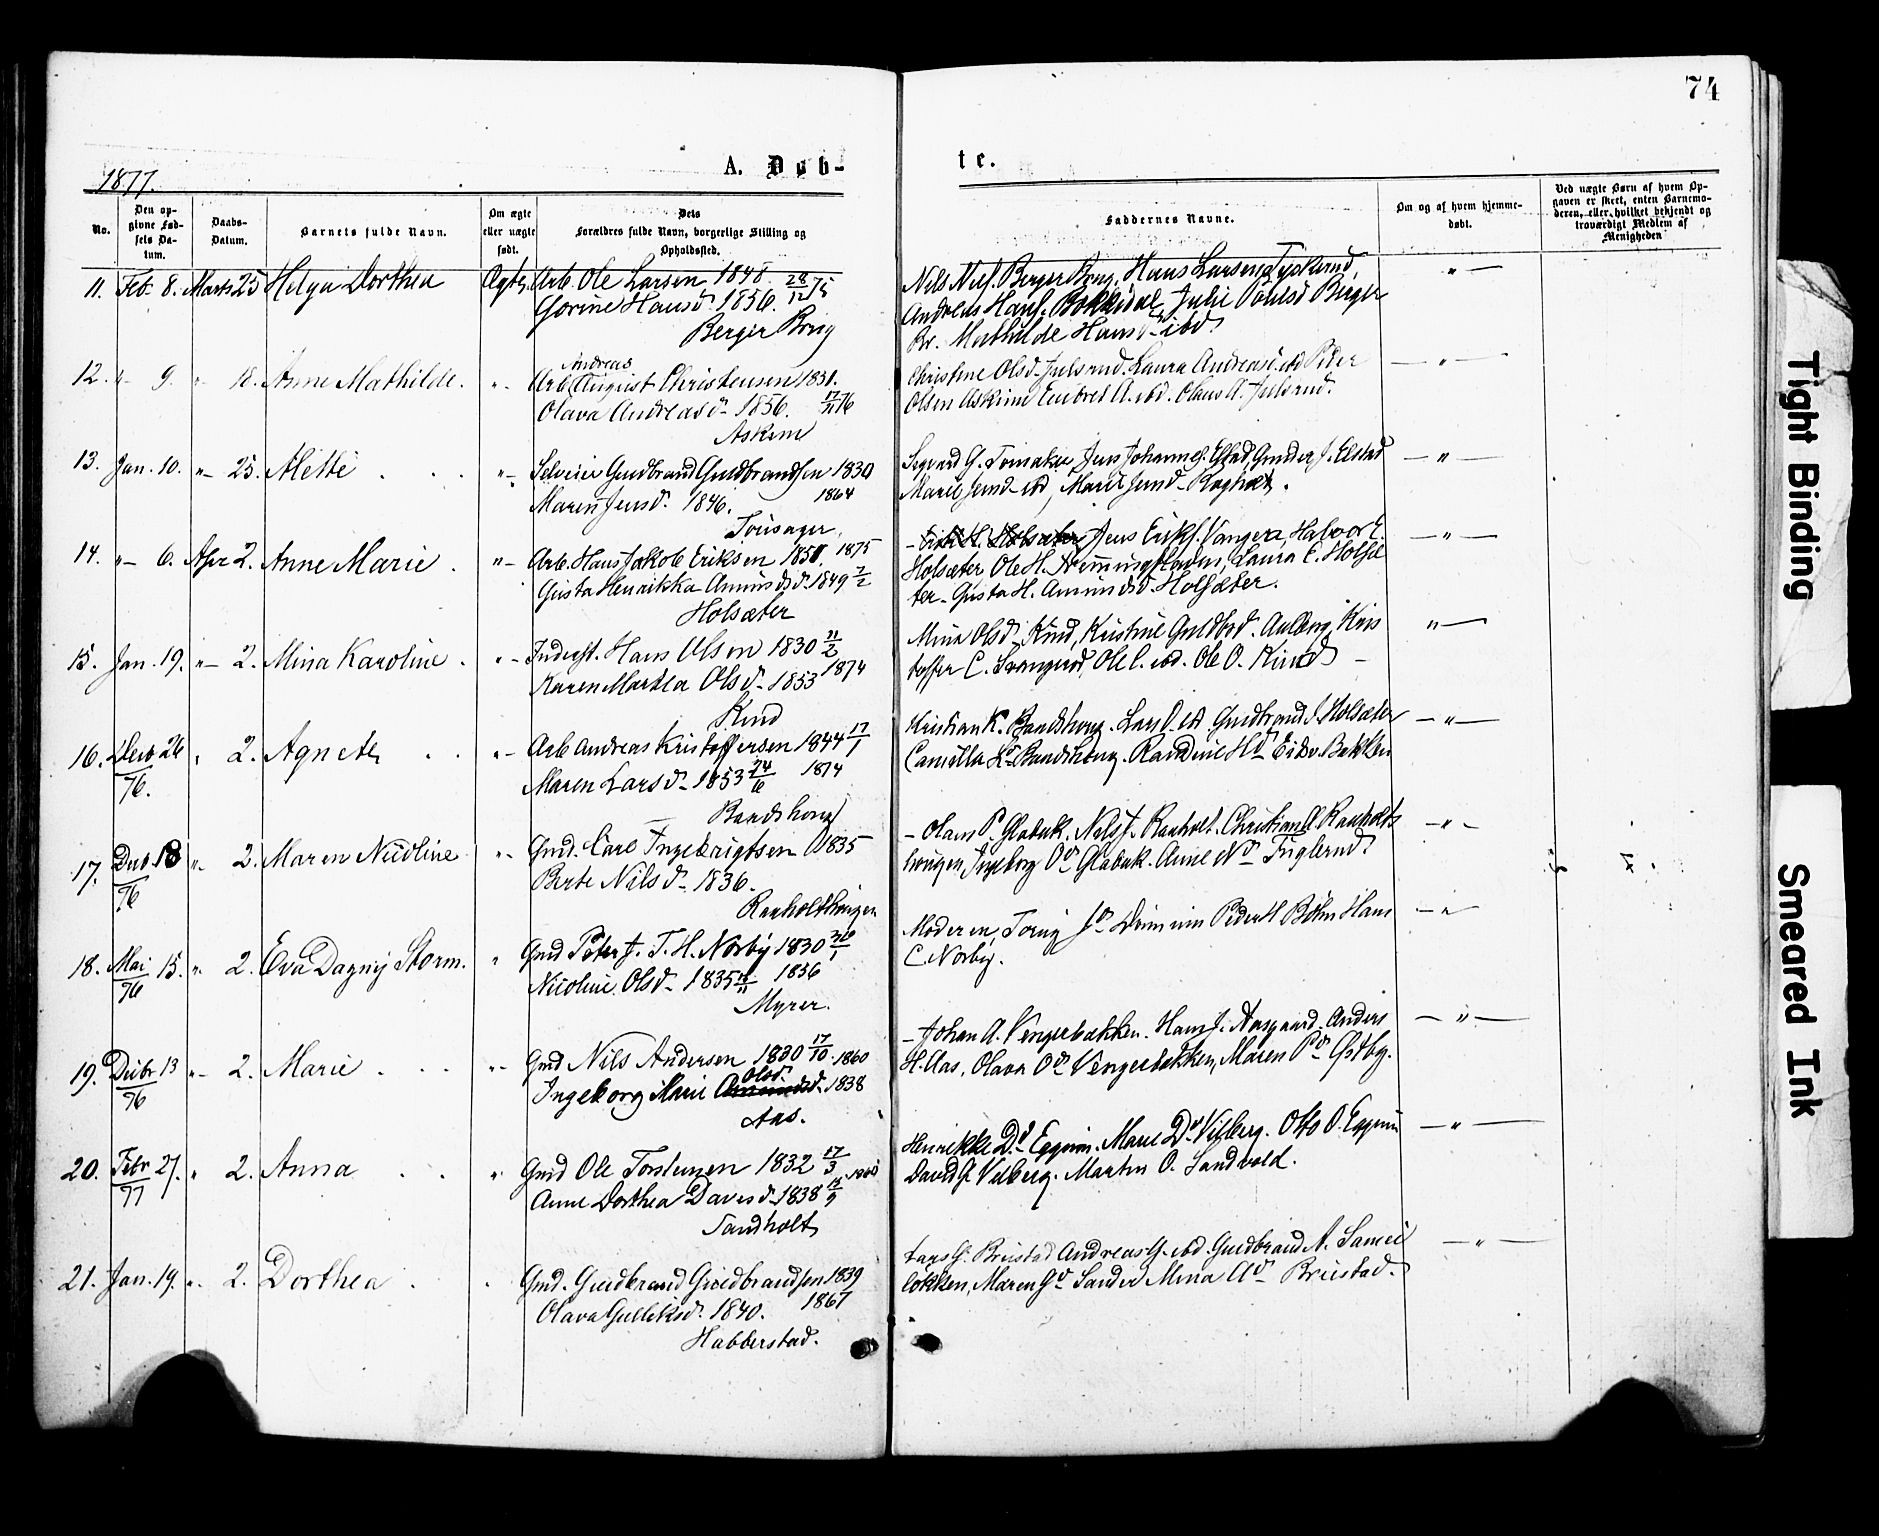 74
1877.
A. Døb-
te.
No.
Den op-
givne Fød-
sels Da-
tum.
Daabs-
Datum.
Barnets fulde Navn.
Om ægte
eller uægte
født.
Dets
Forældres fulde Navn, borgerlige Stilling og
Opholdssted.
Faddernes Navne.
Om og af hvem hjemme-
døbt.
Ved uægte Børn af hvem Op-
gaven er skeet, enten Barnemo-
deren, eller hvilket bekjendt og
troværdigt Medlem af
Menigheden
11. Feb. 8. Marts 25 Helga Dorthea Ægte. Arb. Ole Larsen 1848. 28/12 75
Gorine Hansd. 1856.
Berger Brug
Nils Nils. Berger Brug, Hans Larsen
Andreas Hans. Julie Berger
Br. Mathilde Hansd. ibd.
12. " 9. " 18. Anne Mathilde. "- Andreas
Arb. August Christensen 1831.
Olava Andreasd. 1856. 76
Askim
Christine Olsd. Julsrud. Laura Andreasd. ibd Peder
Olsen Askim Embret A. ibd. Olaus A. Julsrud.
13. Jan. 10. "- 25. Alette "- Selveier Gudbrand Guldbrandsen 1830
Maren Jensd. 1846. 1864
Tousager.
Sigvard G. Johannes. Gunder J. Elstad
Marie Jensd. ibd, Marie Jensd.
14. "- 6. Apr 2. Anne Marie "- Arb. Hans Jakob Eriksen 1851. 1875
Gusta Henrikka Amundsd. 1849 7/2
Holsæter
Jens Eriks. Vangen, Halvor E.
Holsæter Ole H. Laura E. Holsæ
ter. Gusta H. Amundsd. Holsæter.
15. Jan. 19. "- 2. Mina Karoline "- Inderst. Hans Olsen 1830 11/2
Karen Marthea Olsd. 1853 1874
Kind
Mina Olsd. Kind, Kristine Guldbd. Kris
toffer C. Ole C. ibd. Ole O. Kind
16. Decb 26 " 2. Agnete "- Arb Andreas Kristoffersen 1844 17/1
76. Maren Larsd. 1853 24/6 1874
Bandshaug
Kristian K. Bandshaug. Lars ibd Gudbrand J. Holsæter
Camilla K. Bandshaug. Randine Hd. Bakken
17. Decb 18 " 2. Maren Nicoline "- Gmd. Carl Ingebrigtsen 1835
76 Berte Nilsd. 1836.
Raaholthaugen
Olaus P. Glabak. Nils J. Raaholt. Christian Raaholt
haugen, Ingeborg Od. Glabak. Anne Nd. Fuglerud.
18. Mai 15. " 2. Eva Dagny Storm. " Gmd Peter J. T. H. Norby 1830
76 Nicoline Olsd. 1835 1856
Myrer.
Moderen, Peder H Bøhn Hans
C Norby.
19. Decbr 13 "- 2. Marie "- Gmd Nils Andersen 1830 17/10. 1860
76 Olsd.
Ingeborg Marie 1838
Aas.
Johan A. Vengerbakken. Hans J. Aasgaard. Anders
H. Aas, Olava Od. Vengerbakken, Maren Pd. Østby.
20. Febr 27. " 2. Anna " Gmd Ole Torstensen 1832 17/3
77 Anne Dorthea Davesd. 1838
Sandholt
Henrikke Dd. Marie Dd. Vilberg. Otto O.
David G. Vilberg. Martin O. Sandvold.
21. Jan. 19. " 2. Dorthea Gmd. Gudbrand Guldbrandsen 1839
Olava Gulliksd. 1840. 1867
Habberstad.
Lars G. Andreas G. ibd. Gudbrand A.
løkken, Maren Gd. Sander Mina Ad.
Tight Binding
Smeared Ink